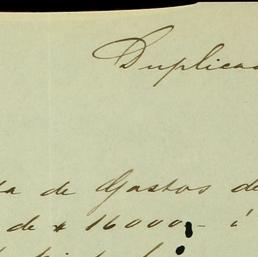 Duplica
de Gastos de
de $ 16000,-